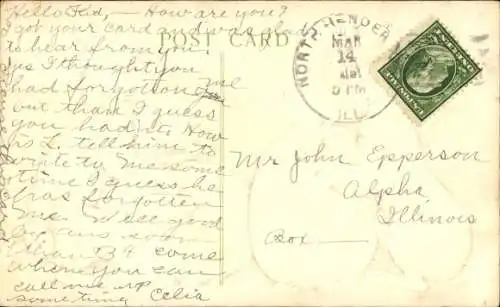 Hello Kid, — How are you?
I got your card and was glad
to hear from you.
yes I thought you
had forgotten me
but than I guess
you hadn't. How
is L. tell him to
write to me some
time I guess he
has forgotten
me. Well good
by ans soon
come
when you can
call me up
something Celia
POST CARD
NORTH HENDER
MAR
14
5 PM
ILL.
Mr John Epperson
Alpha
Illinois
Box —